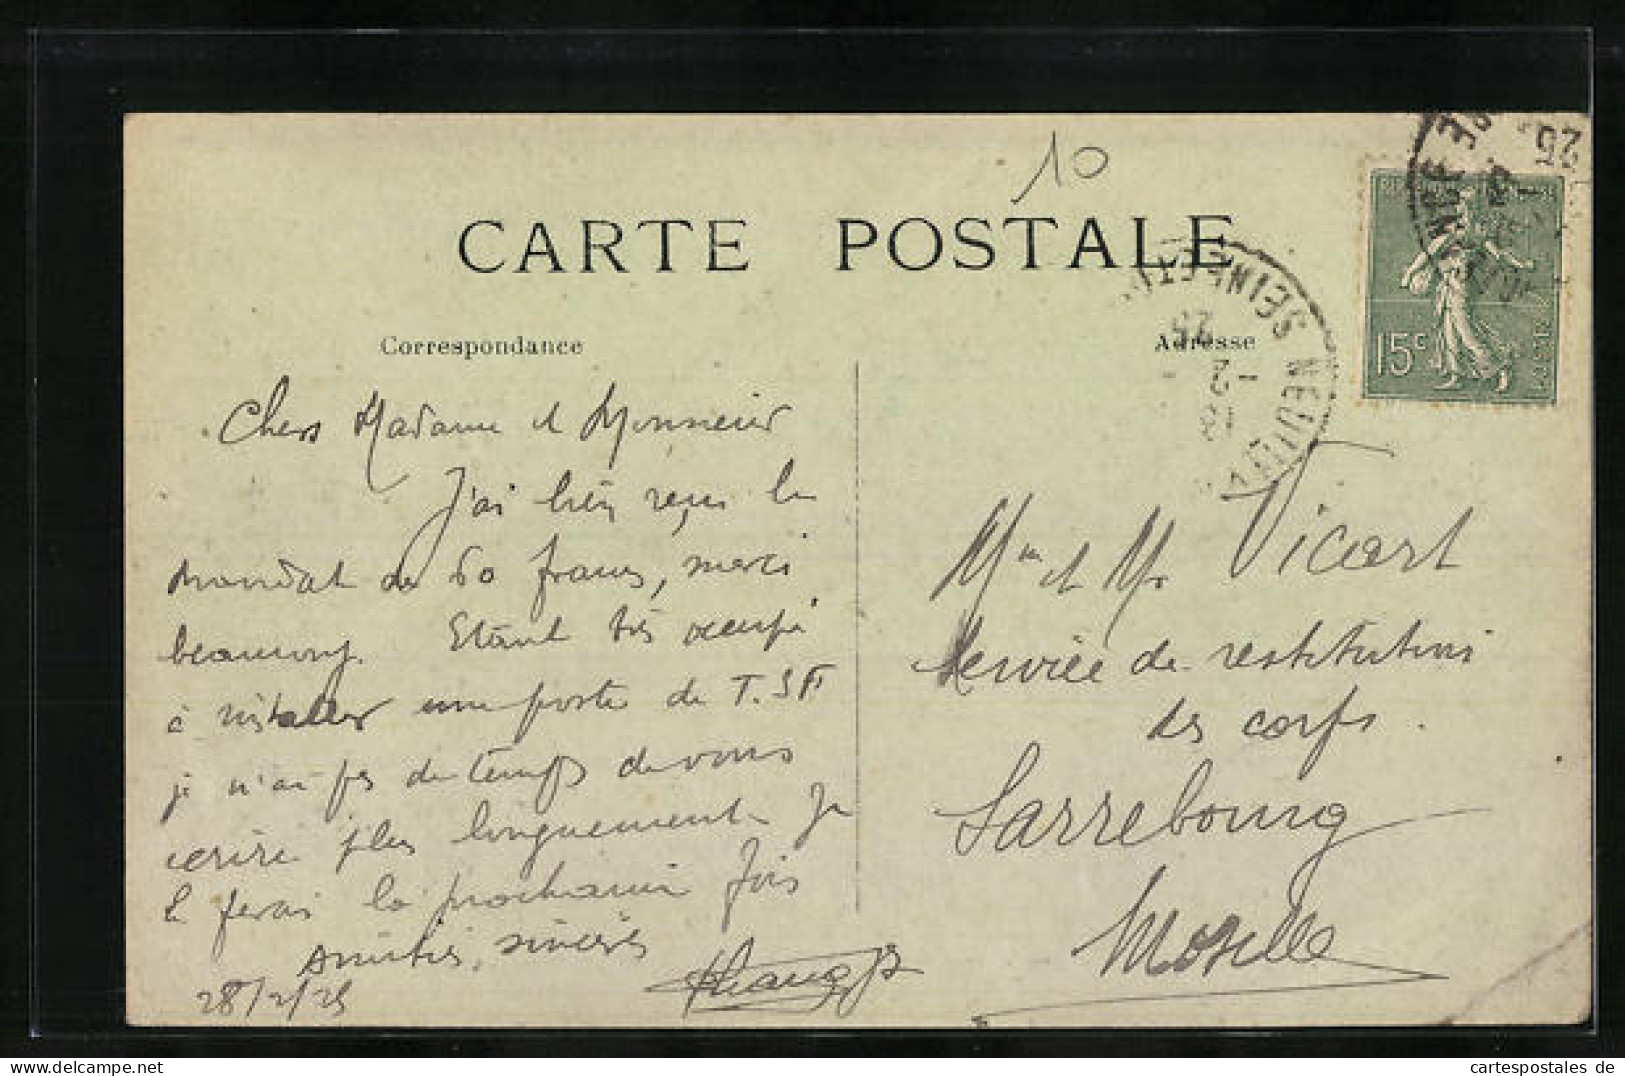 10
CARTE POSTALE
Correspondance
Adresse
15c
25
SEINE ET
1 - 3
25
Chers Madame et Monsieur
J'ai bien reçu le
mandat de 60 francs, merci
beaucoup. Etant très occupé
à installer une poste de T.S.F
je n'ai pas de temps de vous
écrire plus longuement Je
le ferai la prochaine fois
Amitiés sincères
28/2/25
Mme et Mr Vicart
Service de restitutions
des corps.
Sarrebourg
Moselle
cartespostales de